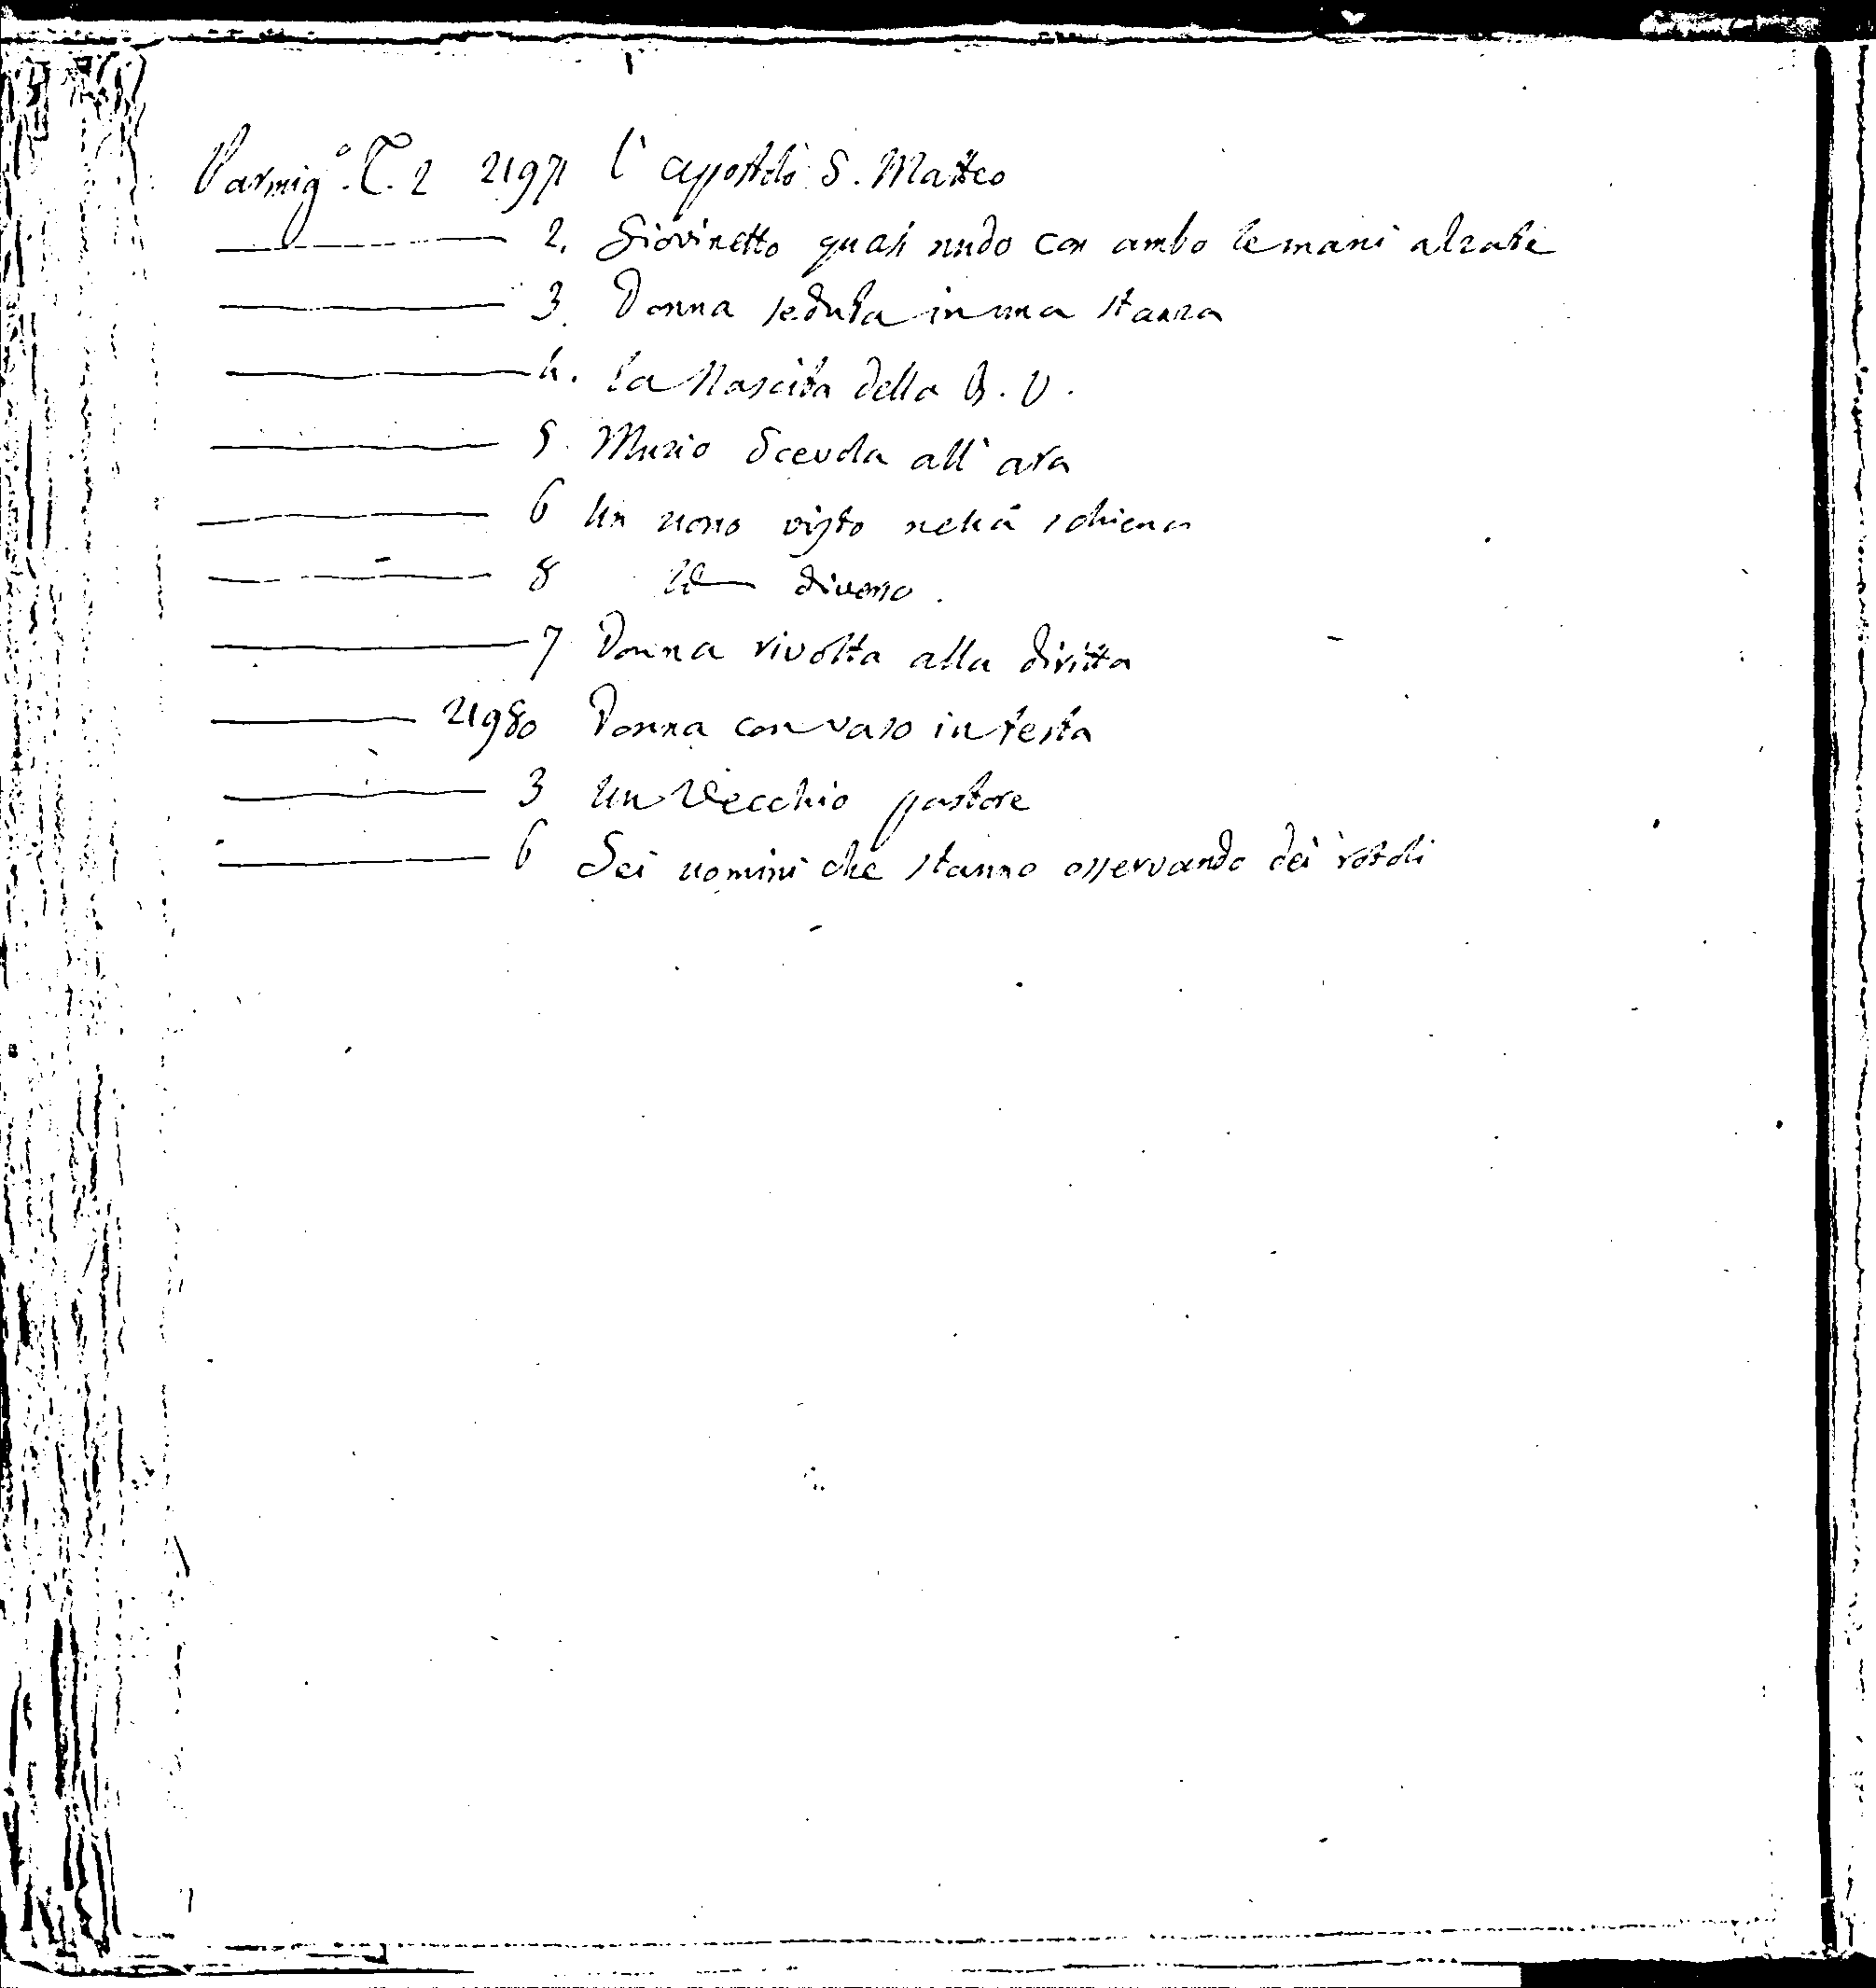 Parmig.º T. 2 21971 l'apostolo S. Matteo
2. Giovinetto quasi nudo con ambo le mani alzate
3. Donna seduta in una stanza
4. la Nascita della B. V.
5. Muzio Scevola all' ara
6 Un uomo visto nella schiena
8 Id diverso.
7 Donna rivolta alla diritta
21980 Donna con vaso in testa
3 Un Vecchio pastore
6 Sei uomini che stanno osservando dei rotoli